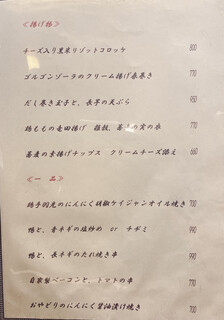 ＜揚げ物＞
チーズ入り黒米リゾットコロッケ 800
ゴルゴンゾーラのクリーム揚げ春巻き 770
だし巻き玉子と、長芋の天ぷら 950
鶏ももの竜田揚げ 雑穀、蕎麦の実の衣 770
蕎麦の素揚げチップス クリームチーズ添え 660
＜一 品＞
鶏手羽元のにんにく胡椒ケイジャンオイル焼き 700
鴨と、青ネギの塩炒め or チヂミ 990
鴨と、長ネギのたれ焼き串 990
自家製ベーコンと、トマトの串
おやどりのにんにく醤油漬け焼き 700